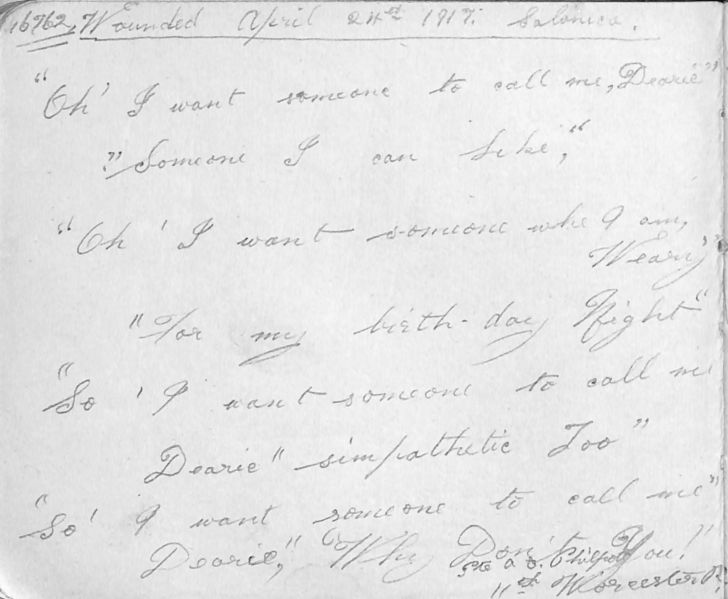 16762, Wounded April 24th 1917. Salonica.
"Oh' I want someone to call me, Dearie"
"Someone I can like,"
"Oh' I want someone whe I am,
Weary"
"For my birth-day Night"
"So' I want someone to call me
Dearie" simpathetic Too"
"So' I want someone to call me"
Dearie," "Why Don't You!"
Pte A. O. Philpott
11th Worcester R.